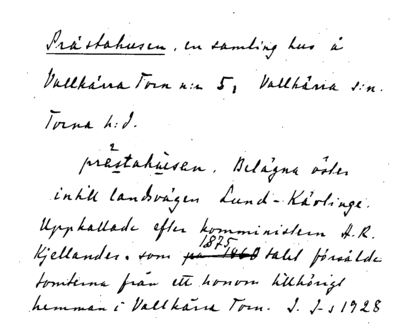 Prästahusen, en samling hus å
Vallkärra Torn n:r 5, Vallkärra s:n.
Torna h:d.
prästahusen. Belägna öster
intill landsvägen Lund-Kävlinge.
Uppkallade efter komministern A.R.
Kjellander, som 1875 talet försålde
tomterna från ett honom tillhörigt
hemman i Vallkärra Torn. I. I-s 1928